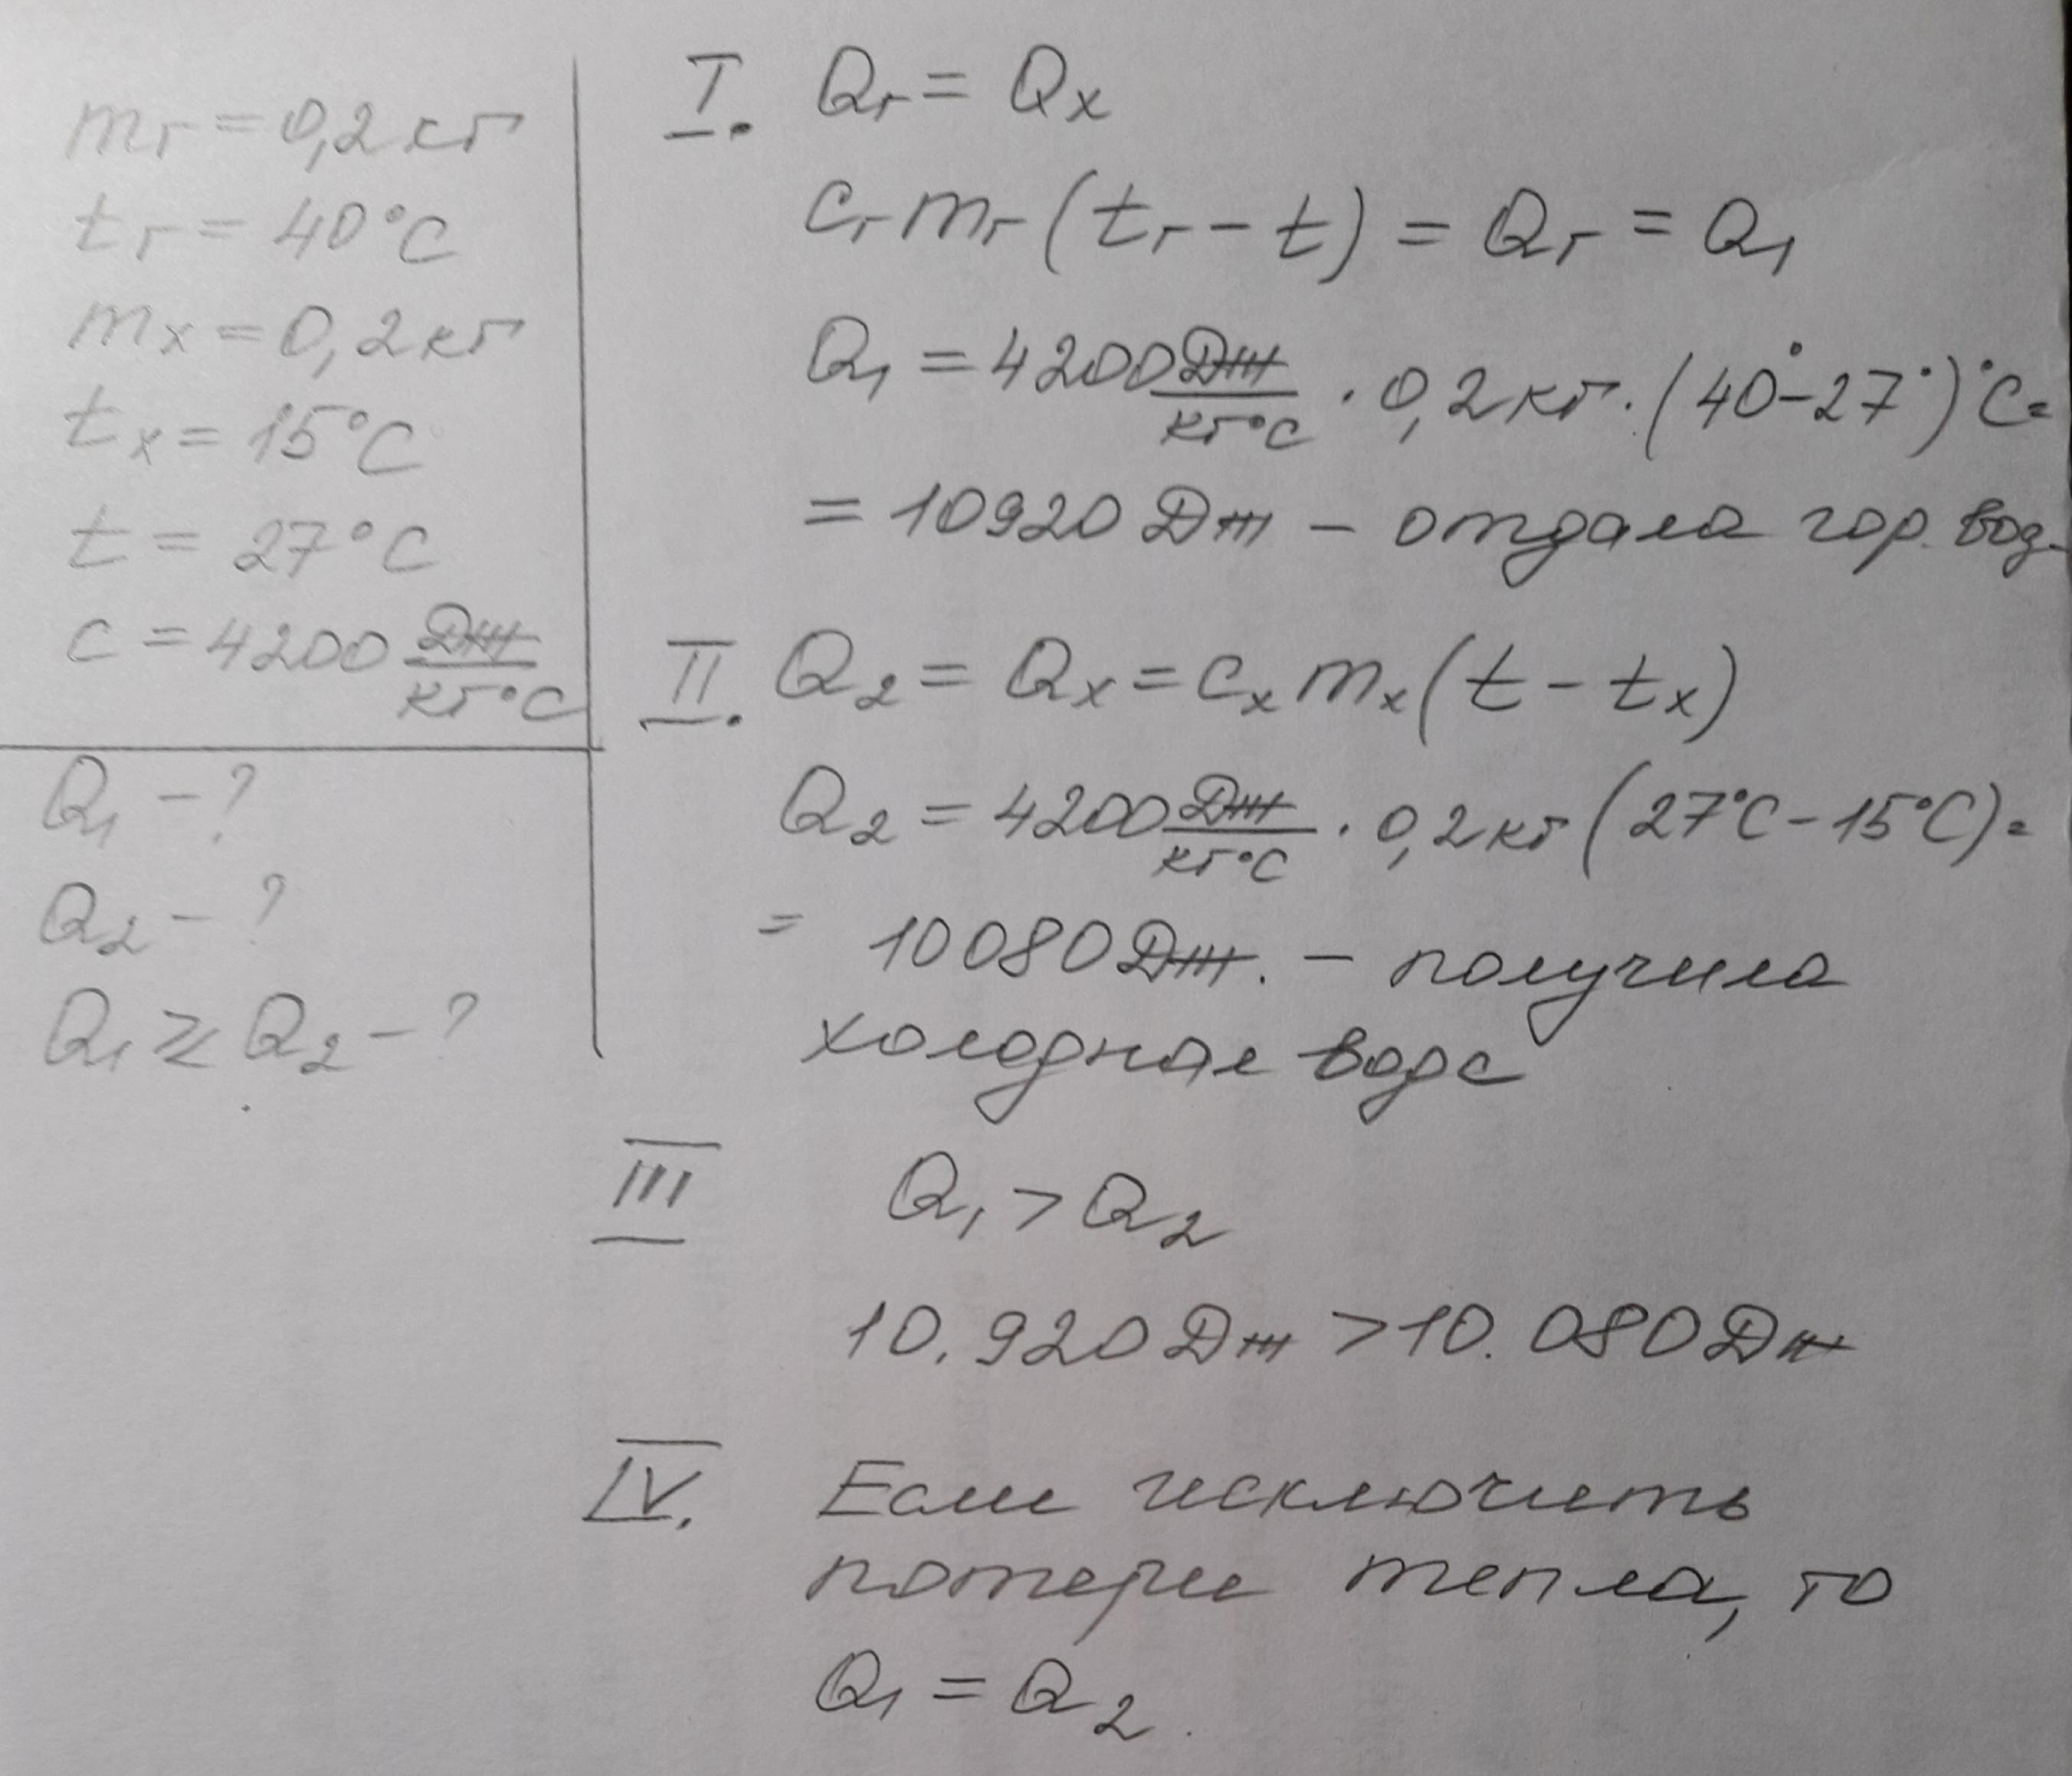 mг = 0,2 кг
tг = 40°C
mх = 0,2 кг
tх = 15°C
t = 27°C
c = 4200 Дж/кг°C
Q₁ – ?
Q₂ – ?
Q₁ ⩾ Q₂ – ?
I. Qг = Qх
cг mг (tг – t) = Qг = Q₁
Q₁ = 4200 Дж/кг°C · 0,2 кг · (40° – 27°)°C =
= 10920 Дж – отдала гор. вод
II. Q₂ = Qх = cх mх (t – tх)
Q₂ = 4200 Дж/кг°C · 0,2 кг (27°C – 15°C) =
= 10080 Дж. – получила
холодная вода
III Q₁ > Q₂
10.920 Дж > 10.080 Дж
IV. Если исключить
потери тепла, то
Q₁ = Q₂.